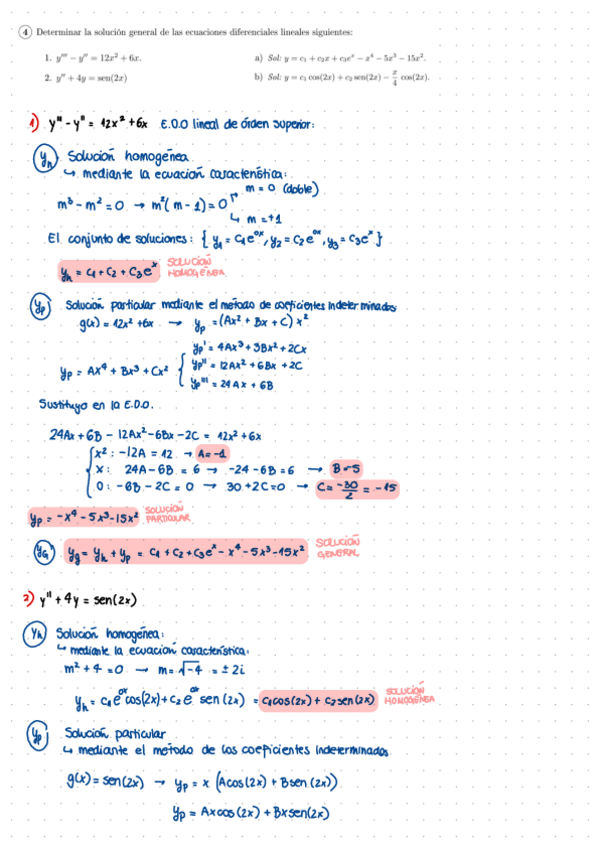 4 Determinar la solución general de las ecuaciones diferenciales lineales siguientes:
1. y''' − y'' = 12x² + 6x. a) Sol: y = c₁ + c₂x + c₃eˣ − x⁴ − 5x³ − 15x².
2. y'' + 4y = sen(2x) b) Sol: y = c₁ cos(2x) + c₂ sen(2x) − x/4 cos(2x).
1) y''' - y'' = 12x² + 6x E.D.O lineal de órden superior:
yₕ Solución homogénea
↳ mediante la ecuación característica:
m = 0 (doble)
m³ - m² = 0 → m²(m - 1) = 0
↳ m = +1
El conjunto de soluciones: { y₁ = C₁e⁰ˣ, y₂ = C₂e⁰ˣ, y₃ = C₃eˣ }
yₕ = C₁ + C₂ + C₃eˣ SOLUCIÓN HOMOGÉNEA
yp Solución particular mediante el método de coeficientes indeterminados
g(x) = 12x² + 6x → yp = (Ax² + Bx + C) x²
yp' = 4Ax³ + 3Bx² + 2Cx
yp = Ax⁴ + Bx³ + Cx² { yp'' = 12Ax² + 6Bx + 2C
yp''' = 24Ax + 6B
Sustituyo en la E.D.O.
24Ax + 6B - 12Ax² - 6Bx - 2C = 12x² + 6x
x²: -12A = 12 → A = -1
x: 24A - 6B = 6 → -24 - 6B = 6 → B = -5
0: -6B - 2C = 0 → 30 + 2C = 0 → C = -30/2 = -15
yp = -x⁴ - 5x³ - 15x² SOLUCIÓN PARTICULAR
yG yg = yₕ + yp = C₁ + C₂ + C₃eˣ - x⁴ - 5x³ - 15x² SOLUCIÓN GENERAL
2) y'' + 4y = sen(2x)
yₕ Solución homogénea:
↳ mediante la ecuación característica:
m² + 4 = 0 → m = √-4 = ± 2i
yₕ = C₁e⁰ˣ cos(2x) + C₂e⁰ˣ sen(2x) = C₁cos(2x) + C₂sen(2x) SOLUCIÓN HOMOGÉNEA
yp Solución particular
↳ mediante el método de los coeficientes indeterminados
g(x) = sen(2x) → yp = x (Acos(2x) + Bsen(2x))
yp = Axcos(2x) + Bxsen(2x)